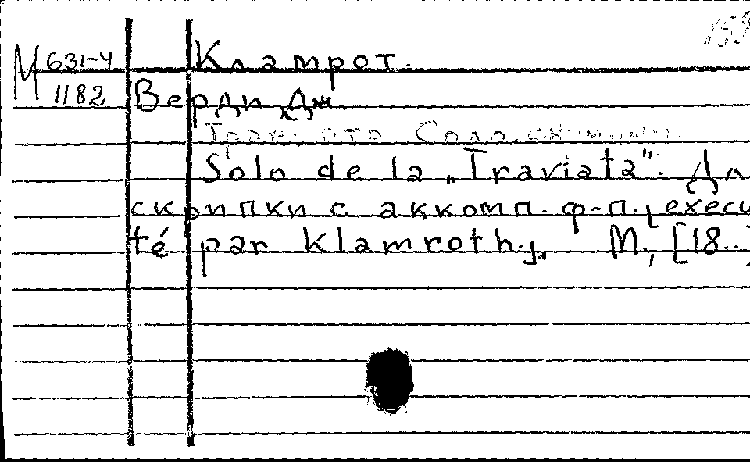 159
M 631-4 Кламрот.
1182 Верди Дж.
Травиата Соло
Solo de la „Traviata". Дл
скрипки с аккомп. ф-п. execu
té par Klamroth. М., [18..]